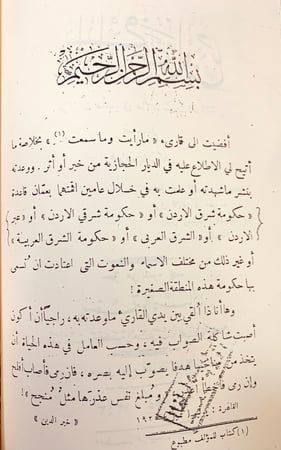 بسم الله الرحمن الرحيم
أفضيت الى قارىء « مارأيت وما سمعت (١) » بخلاصة ما
أتيح لي الاطلاع عليه في الديار الحجازية من خبر أو أثر. ووعدته
بنشر ما شهدته أو علمت به في خلال عامين اقمتهما بعمّان قاعدة
« حكومة شرق الاردن » أو « حكومة شرقي الاردن » أو « عبر
الاردن » أو « الشرق العربي » أو « حكومة الشرق العربية »
أو غير ذلك من مختلف الاسماء والنعوت التى اعتادت ان تُسمى
بها حكومة هذه المنطقة الصغيرة !
وها أنا ذا ألقي بين يدي القارئ ما وعدته به ، راجياً أن أكون
أصبت شاكلة الصواب فيه ، وحسب العامل في هذه الحياة أن
يتخذ من مناحيها هدفا يصوّب إليه بصره ، فان رمى فأصاب أفلح
وان رمى فأخطأ « ومبلغ نفس عذرها مثل « مُنجح » !
القاهرة :
« خير الدين »
(١) كتاب للمؤلف مطبوع